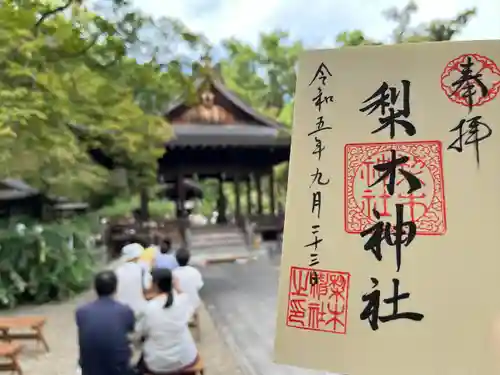 奉拝
梨木神社
令和五年九月二十三日
梨木
神社
梨木
神社
之印